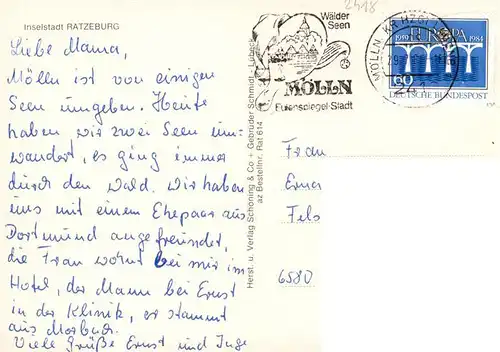 Inselstadt RATZEBURG
Liebe Mama,
Mölln ist von einigen
Seen umgeben. Heute
haben wir zwei Seen um-
wandert, es ging immer
durch den Wald. Wir haben
uns mit einem Ehepaar aus
Dortmund angefreundet,
die Frau wohnt bei mir im
Hotel, der Mann bei Ernst
in der Klinik, er stammt
aus Morbach.
Viele Grüße Ernst und Inge
Herst. u. Verlag Schöning & Co + Gebrüder Schmidt, Lübeck
az Bestellnr. Rat 614
2418
Wälder
Seen
MÖLLN
Eulenspiegel-Stadt
MÖLLN
EUROPA
1959 1984
60
DEUTSCHE BUNDESPOST
Frau
Erna
Fels
6580